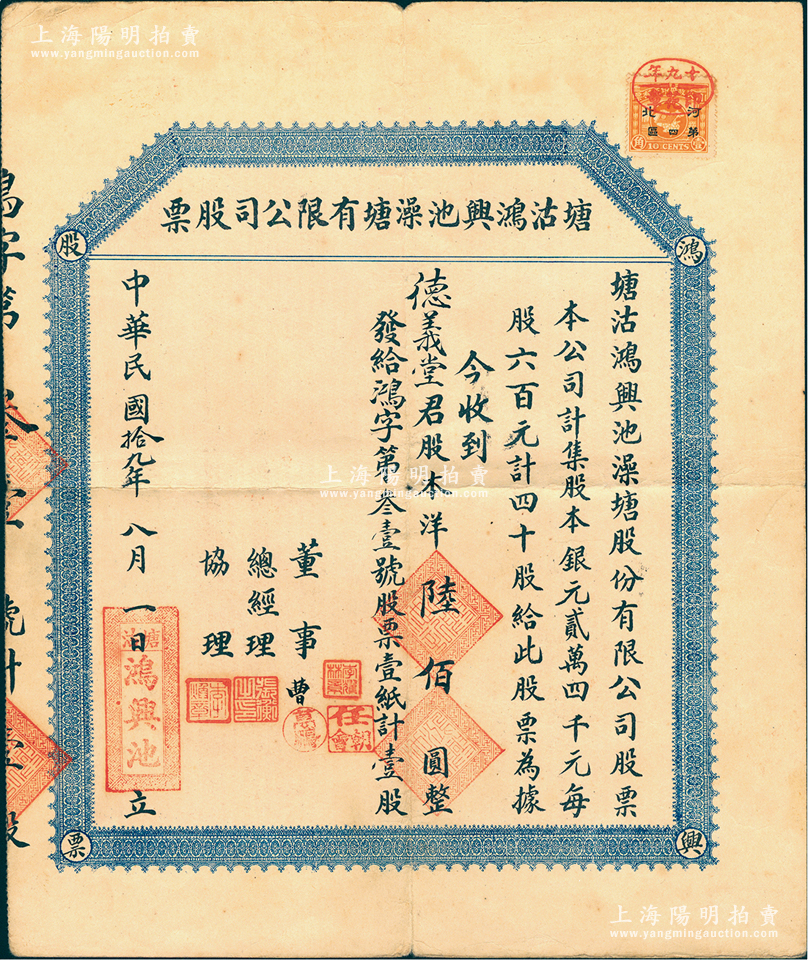 上海陽明拍賣
www.yangmingauction.com
年九十
河北
第四區
角
10 CENTS
壹
塘沽鴻興池澡塘有限公司股票
鴻
興
股
票
塘沽鴻興池澡塘股份有限公司股票
本公司計集股本銀元貳萬四千元每
股六百元計四十股給此股票為據
今收到
德義堂君股本洋陸佰圓整
發給鴻字第叁壹號股票壹紙計壹股
董事曹
任朝會
總經理
協理
中華民國拾九年八月一日立
塘沽
鴻興池
鴻字第叁壹號計壹股
上海陽明拍賣
www.yangmingauction.com
上海陽明拍賣
www.yangmingauction.com